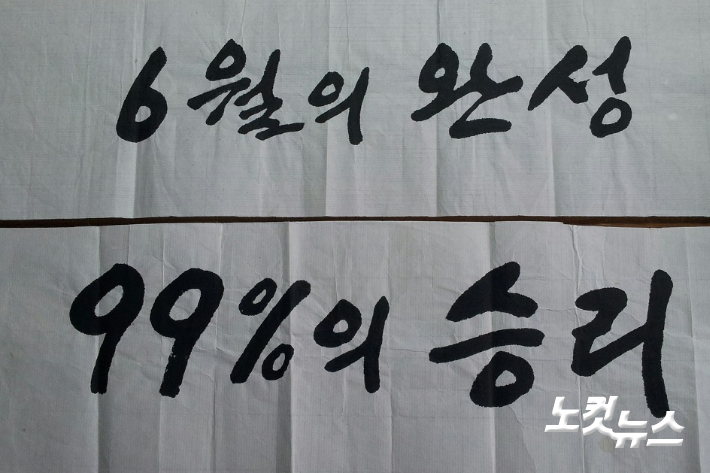 6월의 완성
99%의 승리
노컷뉴스